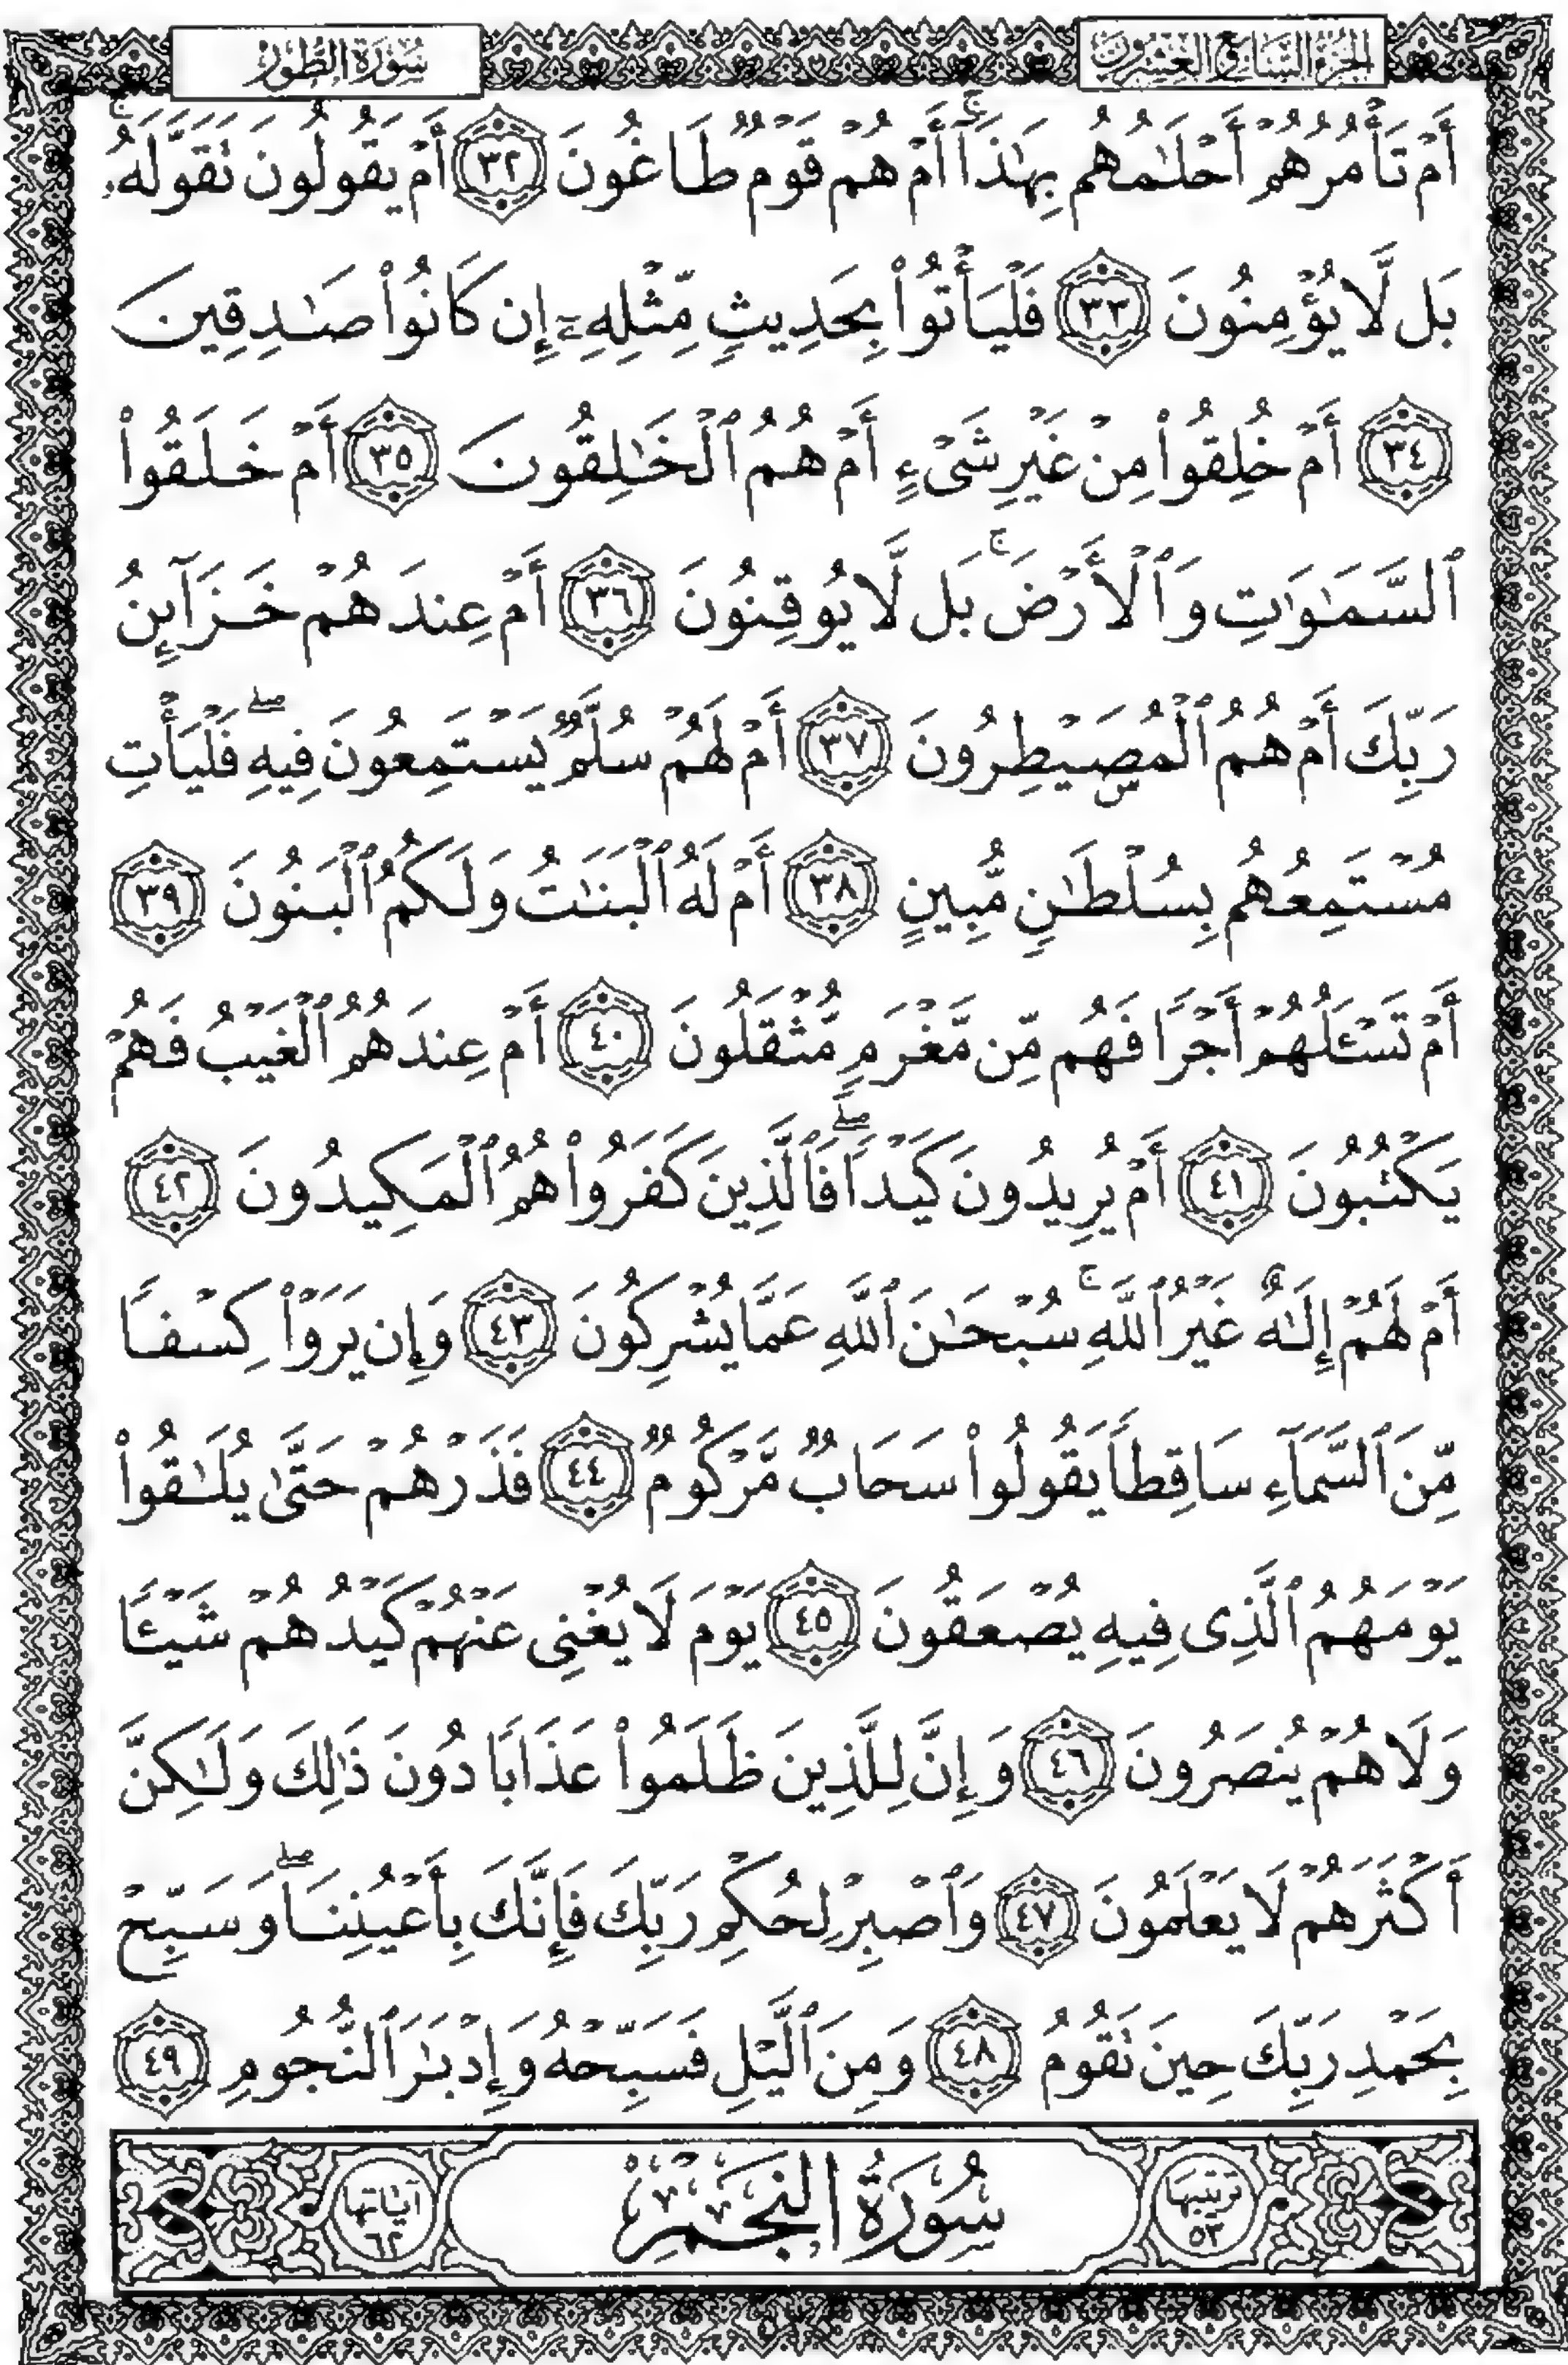 الجزء السابع العشرون
سورة الطور
أَمْ تَأْمُرُهُمْ أَحْلَٰمُهُم بِهَٰذَآ ۚ أَمْ هُمْ قَوْمٌ طَاغُونَ ٣٢ أَمْ يَقُولُونَ تَقَوَّلَهُۥ ۚ
بَل لَّا يُؤْمِنُونَ ٣٣ فَلْيَأْتُوا۟ بِحَدِيثٍ مِّثْلِهِۦٓ إِن كَانُوا۟ صَٰدِقِينَ
٣٤ أَمْ خُلِقُوا۟ مِنْ غَيْرِ شَىْءٍ أَمْ هُمُ ٱلْخَٰلِقُونَ ٣٥ أَمْ خَلَقُوا۟
ٱلسَّمَٰوَٰتِ وَٱلْأَرْضَ ۚ بَل لَّا يُوقِنُونَ ٣٦ أَمْ عِندَهُمْ خَزَآئِنُ
رَبِّكَ أَمْ هُمُ ٱلْمُصَۣيْطِرُونَ ٣٧ أَمْ لَهُمْ سُلَّمٌ يَسْتَمِعُونَ فِيهِ ۖ فَلْيَأْتِ
مُسْتَمِعُهُم بِسُلْطَٰنٍ مُّبِينٍ ٣٨ أَمْ لَهُ ٱلْبَنَٰتُ وَلَكُمُ ٱلْبَنُونَ ٣٩
أَمْ تَسْـَٔلُهُمْ أَجْرًا فَهُم مِّن مَّغْرَمٍ مُّثْقَلُونَ ٤٠ أَمْ عِندَهُمُ ٱلْغَيْبُ فَهُمْ
يَكْتُبُونَ ٤١ أَمْ يُرِيدُونَ كَيْدًا ۖ فَٱلَّذِينَ كَفَرُوا۟ هُمُ ٱلْمَكِيدُونَ ٤٢
أَمْ لَهُمْ إِلَٰهٌ غَيْرُ ٱللَّهِ ۚ سُبْحَٰنَ ٱللَّهِ عَمَّا يُشْرِكُونَ ٤٣ وَإِن يَرَوْا۟ كِسْفًا
مِّنَ ٱلسَّمَآءِ سَاقِطًا يَقُولُوا۟ سَحَابٌ مَّرْكُومٌ ٤٤ فَذَرْهُمْ حَتَّىٰ يُلَٰقُوا۟
يَوْمَهُمُ ٱلَّذِى فِيهِ يُصْعَقُونَ ٤٥ يَوْمَ لَا يُغْنِى عَنْهُمْ كَيْدُهُمْ شَيْـًٔا
وَلَا هُمْ يُنصَرُونَ ٤٦ وَإِنَّ لِلَّذِينَ ظَلَمُوا۟ عَذَابًا دُونَ ذَٰلِكَ وَلَٰكِنَّ
أَكْثَرَهُمْ لَا يَعْلَمُونَ ٤٧ وَٱصْبِرْ لِحُكْمِ رَبِّكَ فَإِنَّكَ بِأَعْيُنِنَا ۖ وَسَبِّحْ
بِحَمْدِ رَبِّكَ حِينَ تَقُومُ ٤٨ وَمِنَ ٱلَّيْلِ فَسَبِّحْهُ وَإِدْبَٰرَ ٱلنُّجُومِ ٤٩
ترتيبها ٥٣ سُورَةُ النَّجْمِ آياتها ٦٢